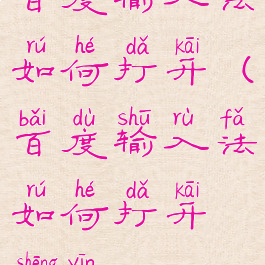 百度输入法
rú hé dǎ kāi
如何打开（
bǎi dù shū rù fǎ
百度输入法
rú hé dǎ kāi
如何打开
shēng yīn